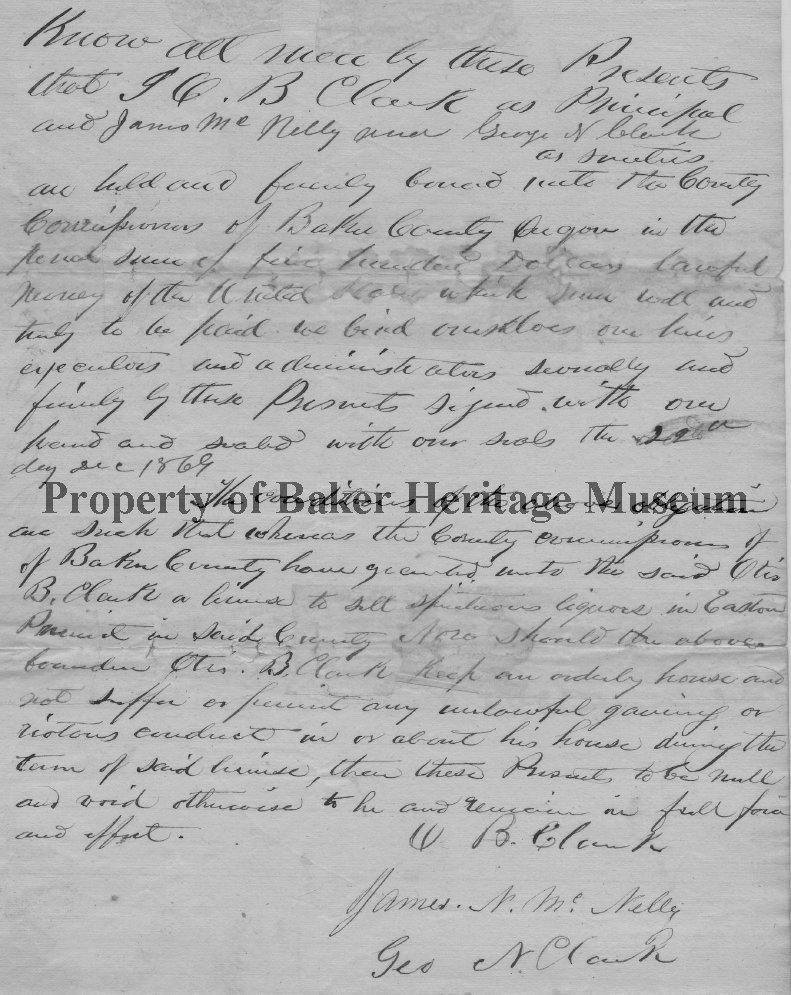 Know all men by these Presents
that I O. B Clark as Principal
and James Mc Nelly and George N Clark
as sureties
are held and firmly bound unto the County
Commissioners of Baker County Oregon in the
penal sum of five hundred Dollars lawful
money of the United States which sum well and
truly to be paid we bind ourselves our heirs
executors and administrators severally and
firmly by these Presents signed with our
hand and sealed with our seals the 22nd
day Dec 1869
Property of Baker Heritage Museum
The conditions of the above obligation
are such that whereas the County commissioners of
of Baker County have granted unto the said Otis
B. Clark a license to sell spirituous liquors in Easton
Precinct in said County Now should the above
bounden Otis. B. Clark keep an orderly house and
not suffer or permit any unlawful gaming or
riotous conduct in or about his house during the
term of said license, then these Presents to be null
and void otherwise to be and remain in full force
and effect.
O B. Clark
James. N. Mc Nelly
Geo N. Clark